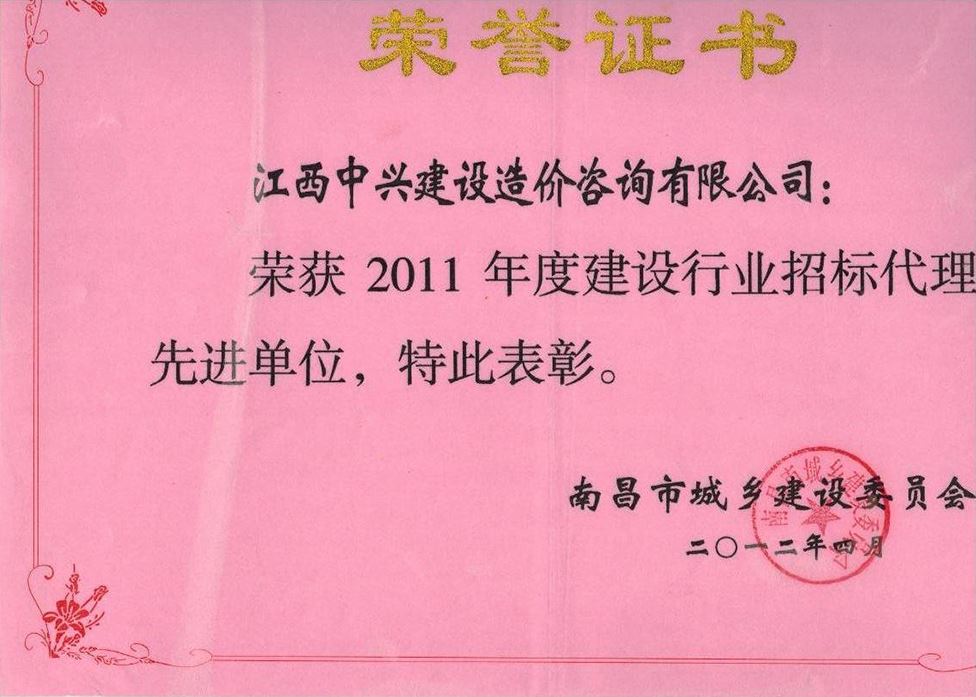 荣誉证书
江西中兴建设造价咨询有限公司：
荣获 2011 年度建设行业招标代理
先进单位，特此表彰。
南昌市城乡建设委员会
二〇一二年四月
南昌市城乡建设委员会